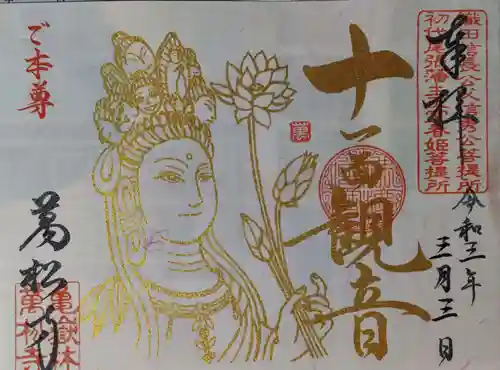 織田信長公父信秀公菩提所
初代尾張藩主 春姫菩提所
奉拝
令和三年
三月三日
十一面觀音
ご本尊
萬
萬松寺
亀嶽林
萬松寺